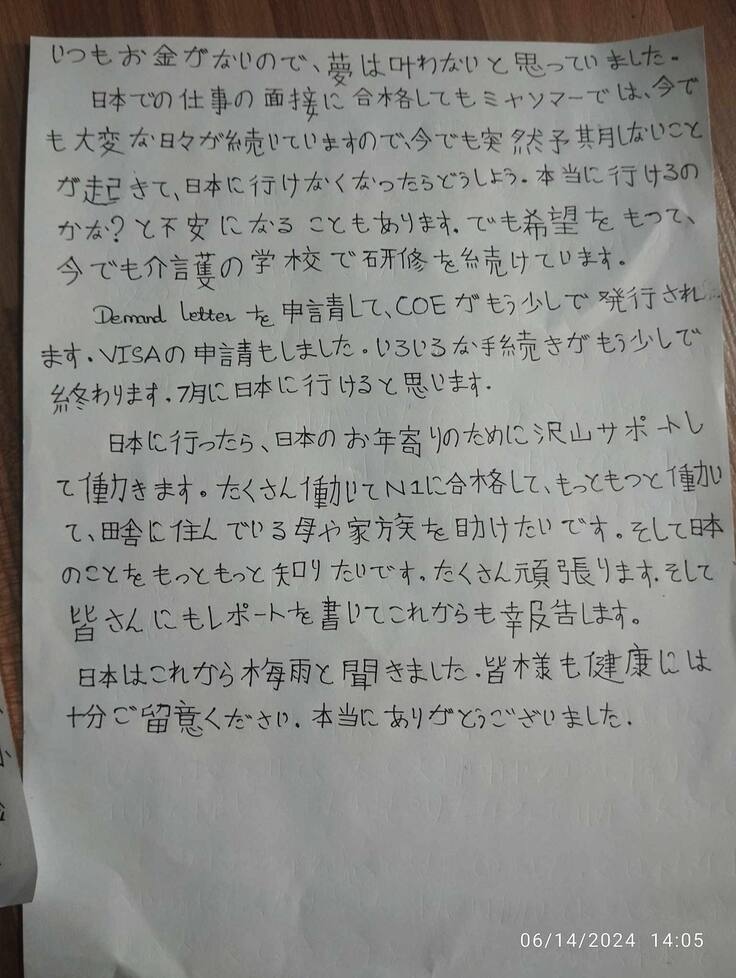 いつもお金がないので、夢は叶わないと思っていました。
日本での仕事の面接に合格してもミャンマーでは、今で
も大変な日々が続いていますので、今でも突然予期しないこと
が起きて、日本に行けなくなったらどうしよう。本当に行けるの
かな?と不安になることもあります。でも希望をもって、
今でも介護の学校で研修を続けています。
Demand letterを申請して、COEがもう少しで発行され
ます。VISAの申請もしました。いろいろな手続きがもう少しで
終わります。7月に日本に行けると思います。
日本に行ったら、日本のお年寄りのために沢山サポートし
て働きます。たくさん働いてN1に合格して、もっともっと働い
て、田舎に住んでいる母や家族を助けたいです。そして日本
のことをもっともっと知りたいです。たくさん頑張ります。そして
皆さんにもレポートを書いてこれからも報告します。
日本はこれから梅雨と聞きました。皆様も健康には
十分ご留意ください。本当にありがとうございました。
06/14/2024 14:05